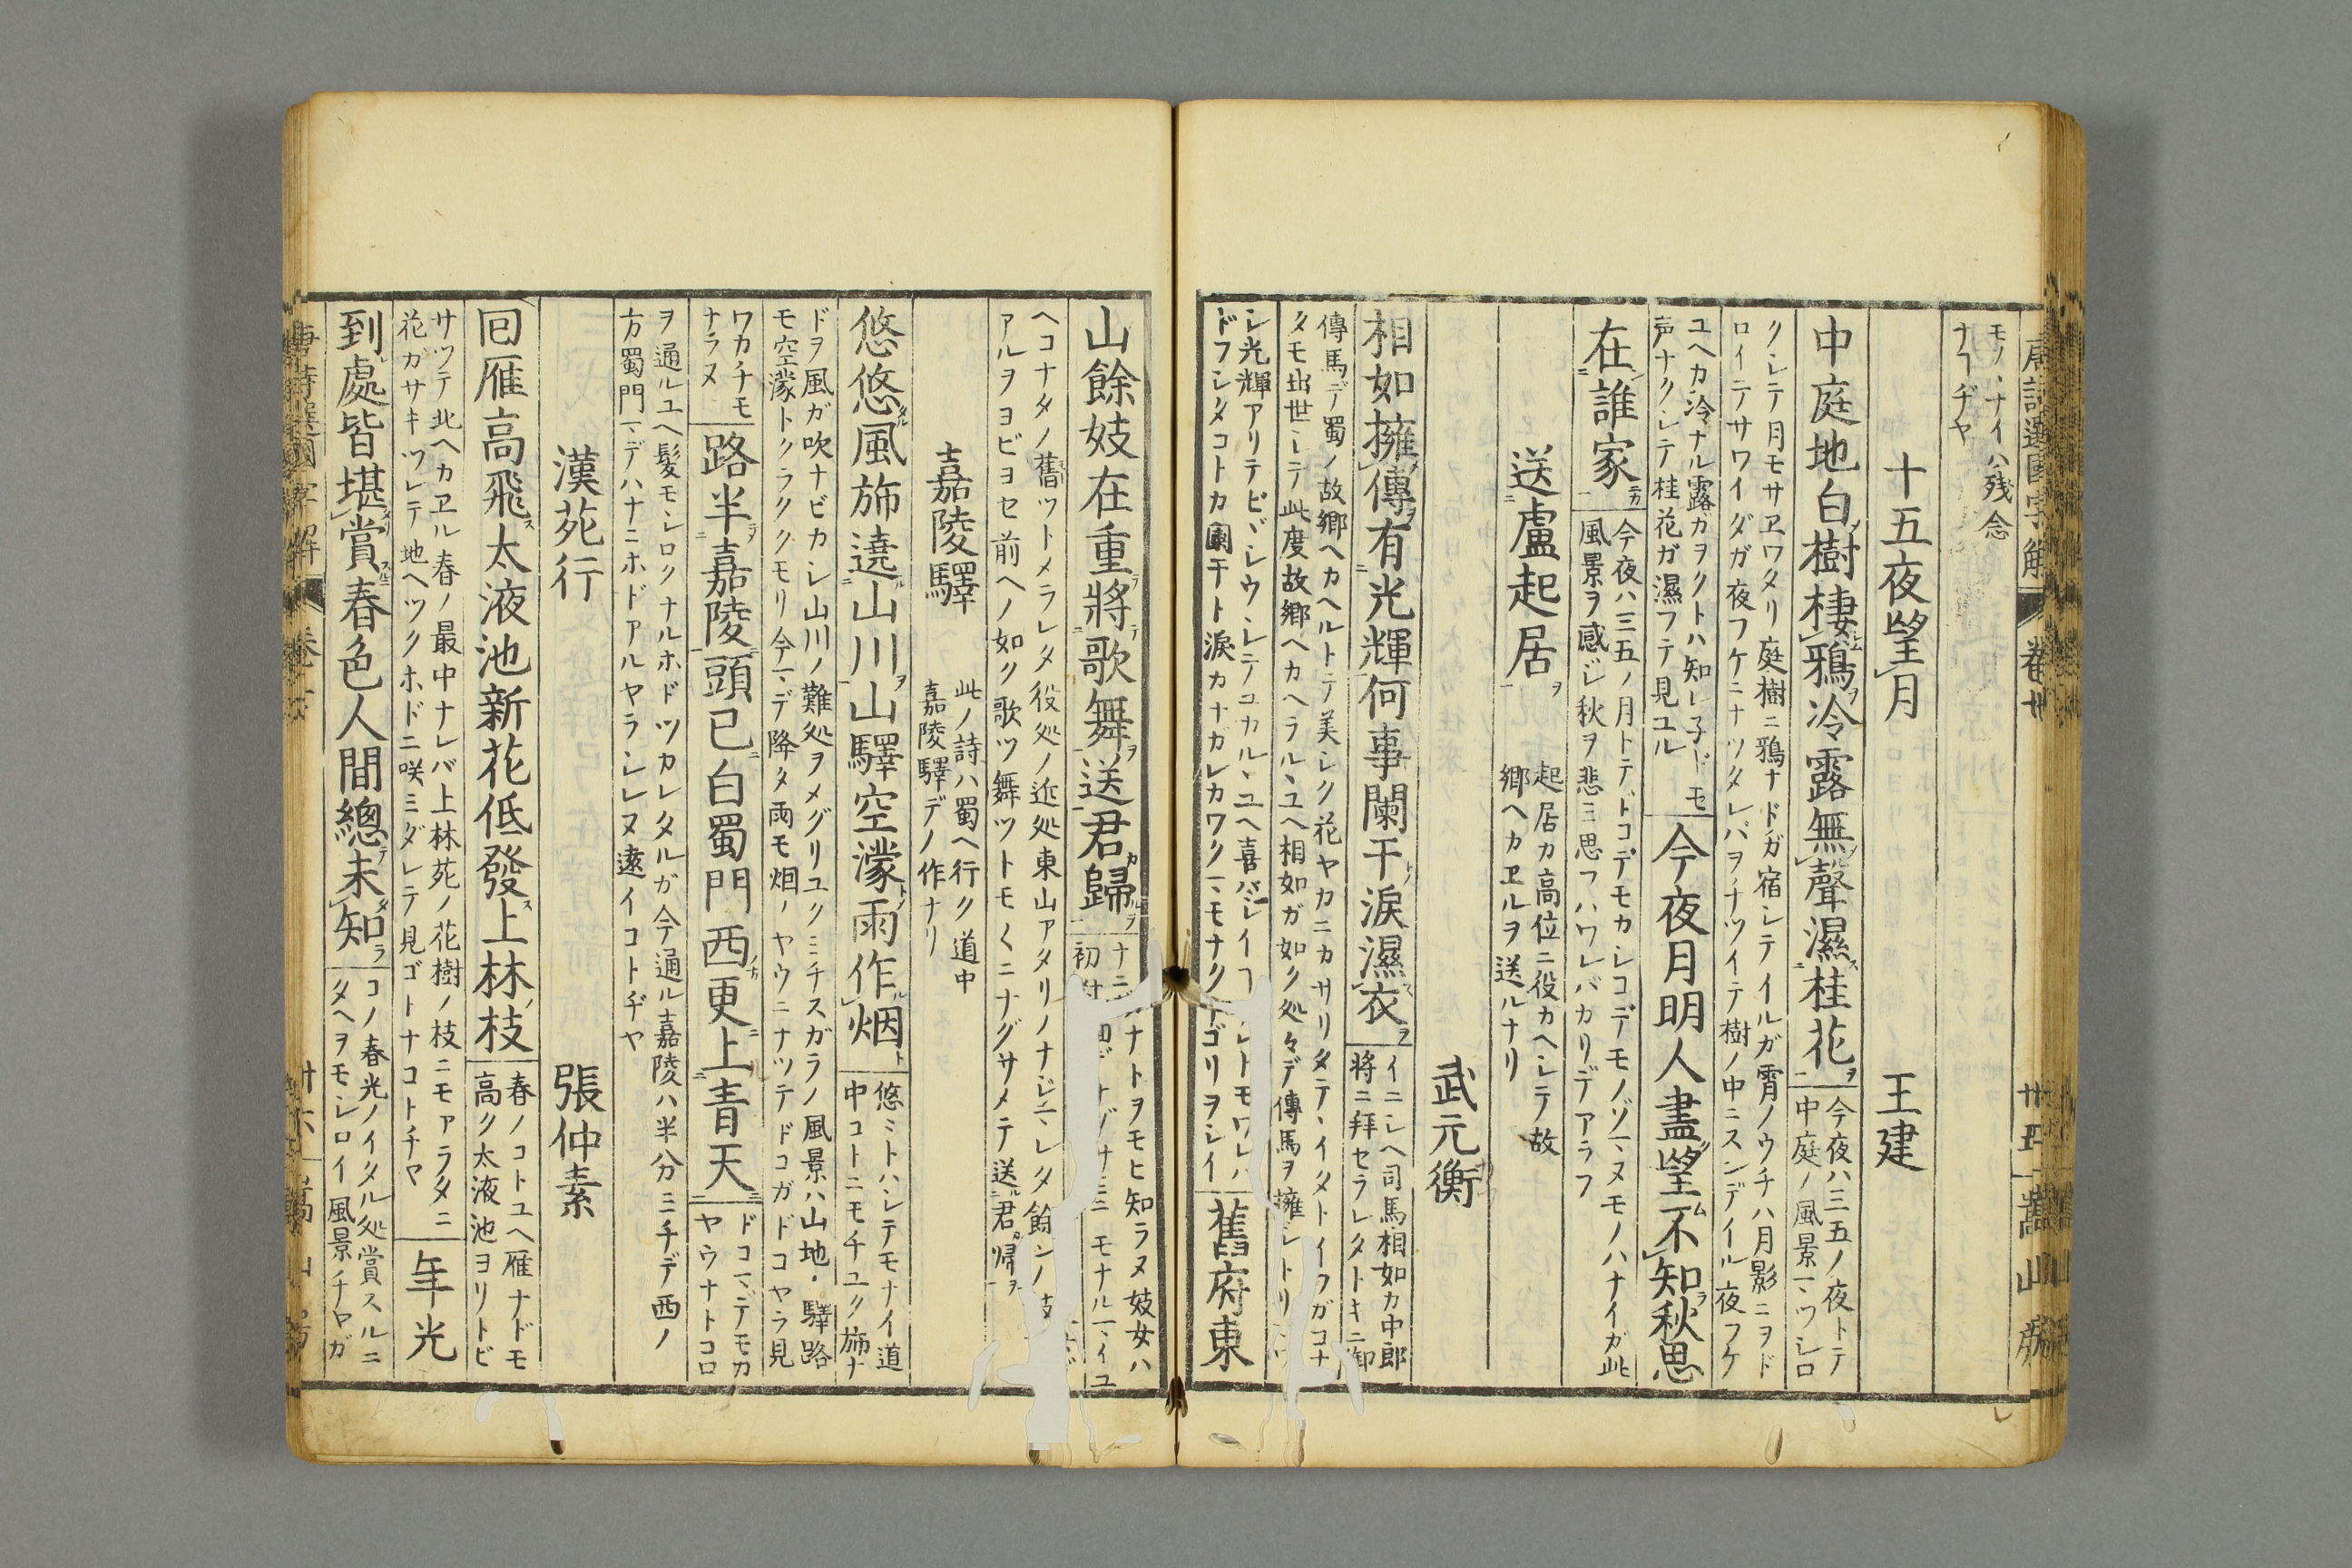 モノヽナイハ残念
ナヿヂヤ
十五夜望月
王建
中庭地白樹棲鴉冷露無聲濕桂花
今夜ハ三五ノ夜トテ
中庭ノ風景一ヽツシロ
クシテ月モサヱワタリ庭樹ニ鴉ナドガ宿シテイルガ霄ノウチハ月影ニヲド
ロイテサワイダガ夜フケニナツタレバヲヽナツイテ樹ノ中ニスンデイル夜フケ
ユヘカ冷ナル露ガヲクトハ知レ子ドモ
声ナクシテ桂花ガ濕フテ見ユル
今夜月明人盡望不知秋思
在誰家
今夜ハ三五ノ月トテドコデモカシコデモノゾマヌモノハナイガ此
風景ヲ感ジ秋ヲ悲ミ思フハワレバカリデアラフ
送盧起居
起居カ高位ニ役カヘシテ故
郷ヘカヱルヲ送ルナリ
武元衡
相如擁傳有光輝何事闌干淚濕衣
イニシヘ司馬相如カ中郎
將ニ拜セラレタトキニ御
傳馬デ蜀ノ故郷ヘカヘルトテ美シク花ヤカニカサリタテヽイタトイフガコナ
タモ出世シテ此度故郷ヘカヘラルヽユヘ相如ガ如ク処々デ傳馬ヲ擁シトリ
レ光輝アリテビヾシウシテユカルヽユヘ喜バシイ
ドフシタコトカ闌干ト淚カナカレカワクマモナク
ゴリヲシイ
舊府東
山餘妓在重將歌舞送君歸
ナトヲモヒ知ラヌ妓女ハ
ヘコナタノ舊ツトメラレタ役処ノ近処東山アタリノナジミシタ餘ンノ妓
アルヲヨビヨセ前ヘノ如ク歌ツ舞ツトモ〱ニナグサメテ送君帰ヲ
嘉陵驛
此ノ詩ハ蜀ヘ行ク道中
嘉陵驛デノ作ナリ
悠悠風斾遶山川山驛空濛雨作烟
悠〻トハシテモナイ道
中コトニモチユク斾ナ
ドヲ風ガ吹ナビカシ山川ノ難処ヲメグリユクミチスガラノ風景ハ山地ノ驛路
モ空濛トクラククモリ今マデ降タ雨モ烟ノヤウニナツテドコガドコヤラ見
ワカチモ
ナラヌ
路半嘉陵頭已白蜀門西更上青天
ドコマデモカ
ヤウナトコロ
ヲ通ルユヘ髪モシロクナルホドツカレタルガ今通ル嘉陵ハ半分ミチデ西ノ
方蜀門マデハナニホドアルヤラシレヌ遠イコトヂヤ
漢苑行
張仲素
回雁高飛太液池新花低發上林枝
春ノコトユヘ雁ナドモ
高ク太液池ヨリトビ
サツテ北ヘカヱル春ノ最中ナレバ上林苑ノ花樹ノ枝ニモアラタニ
花ガサキツレテ地ヘツクホドニ咲ミダレテ見ゴトナコトチヤ
年光
到處皆堪賞春色人間總未知
コノ春光ノイタル処賞スルニ
タヘヲモシロイ風景チヤガ